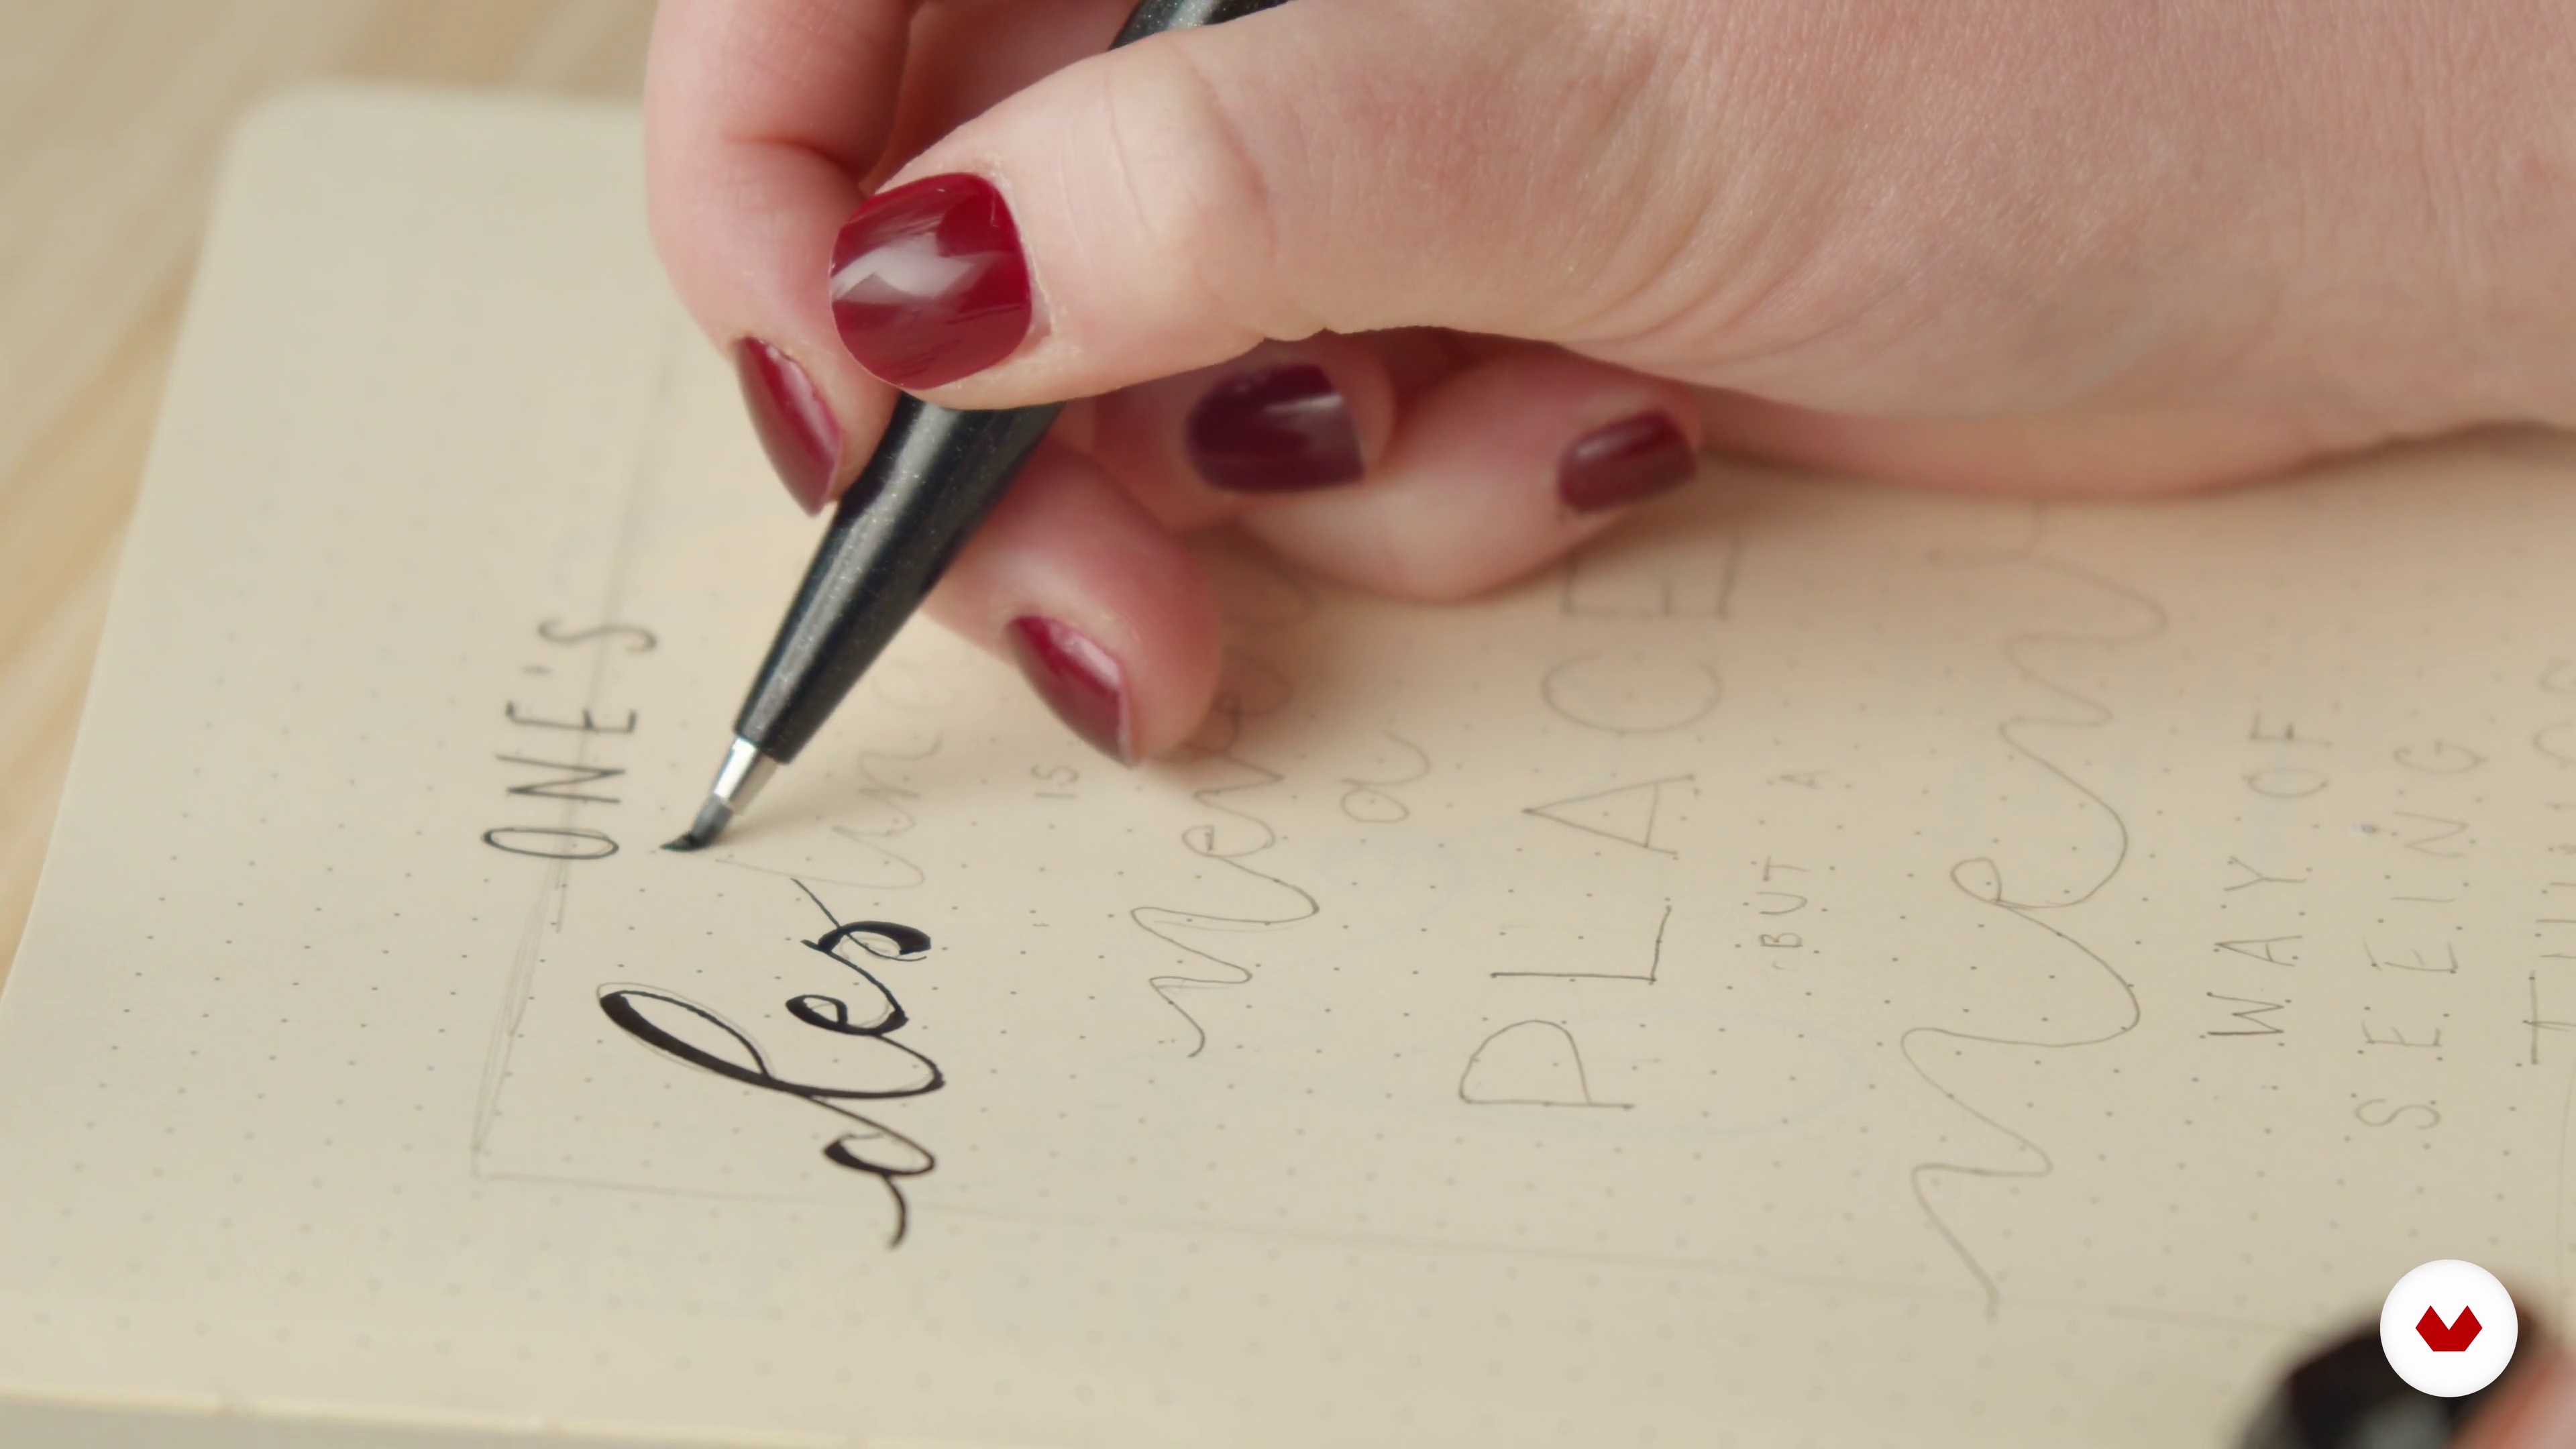 ONE'S
des
IS
never
a
PLACE
BUT A
new
WAY OF
SEEING